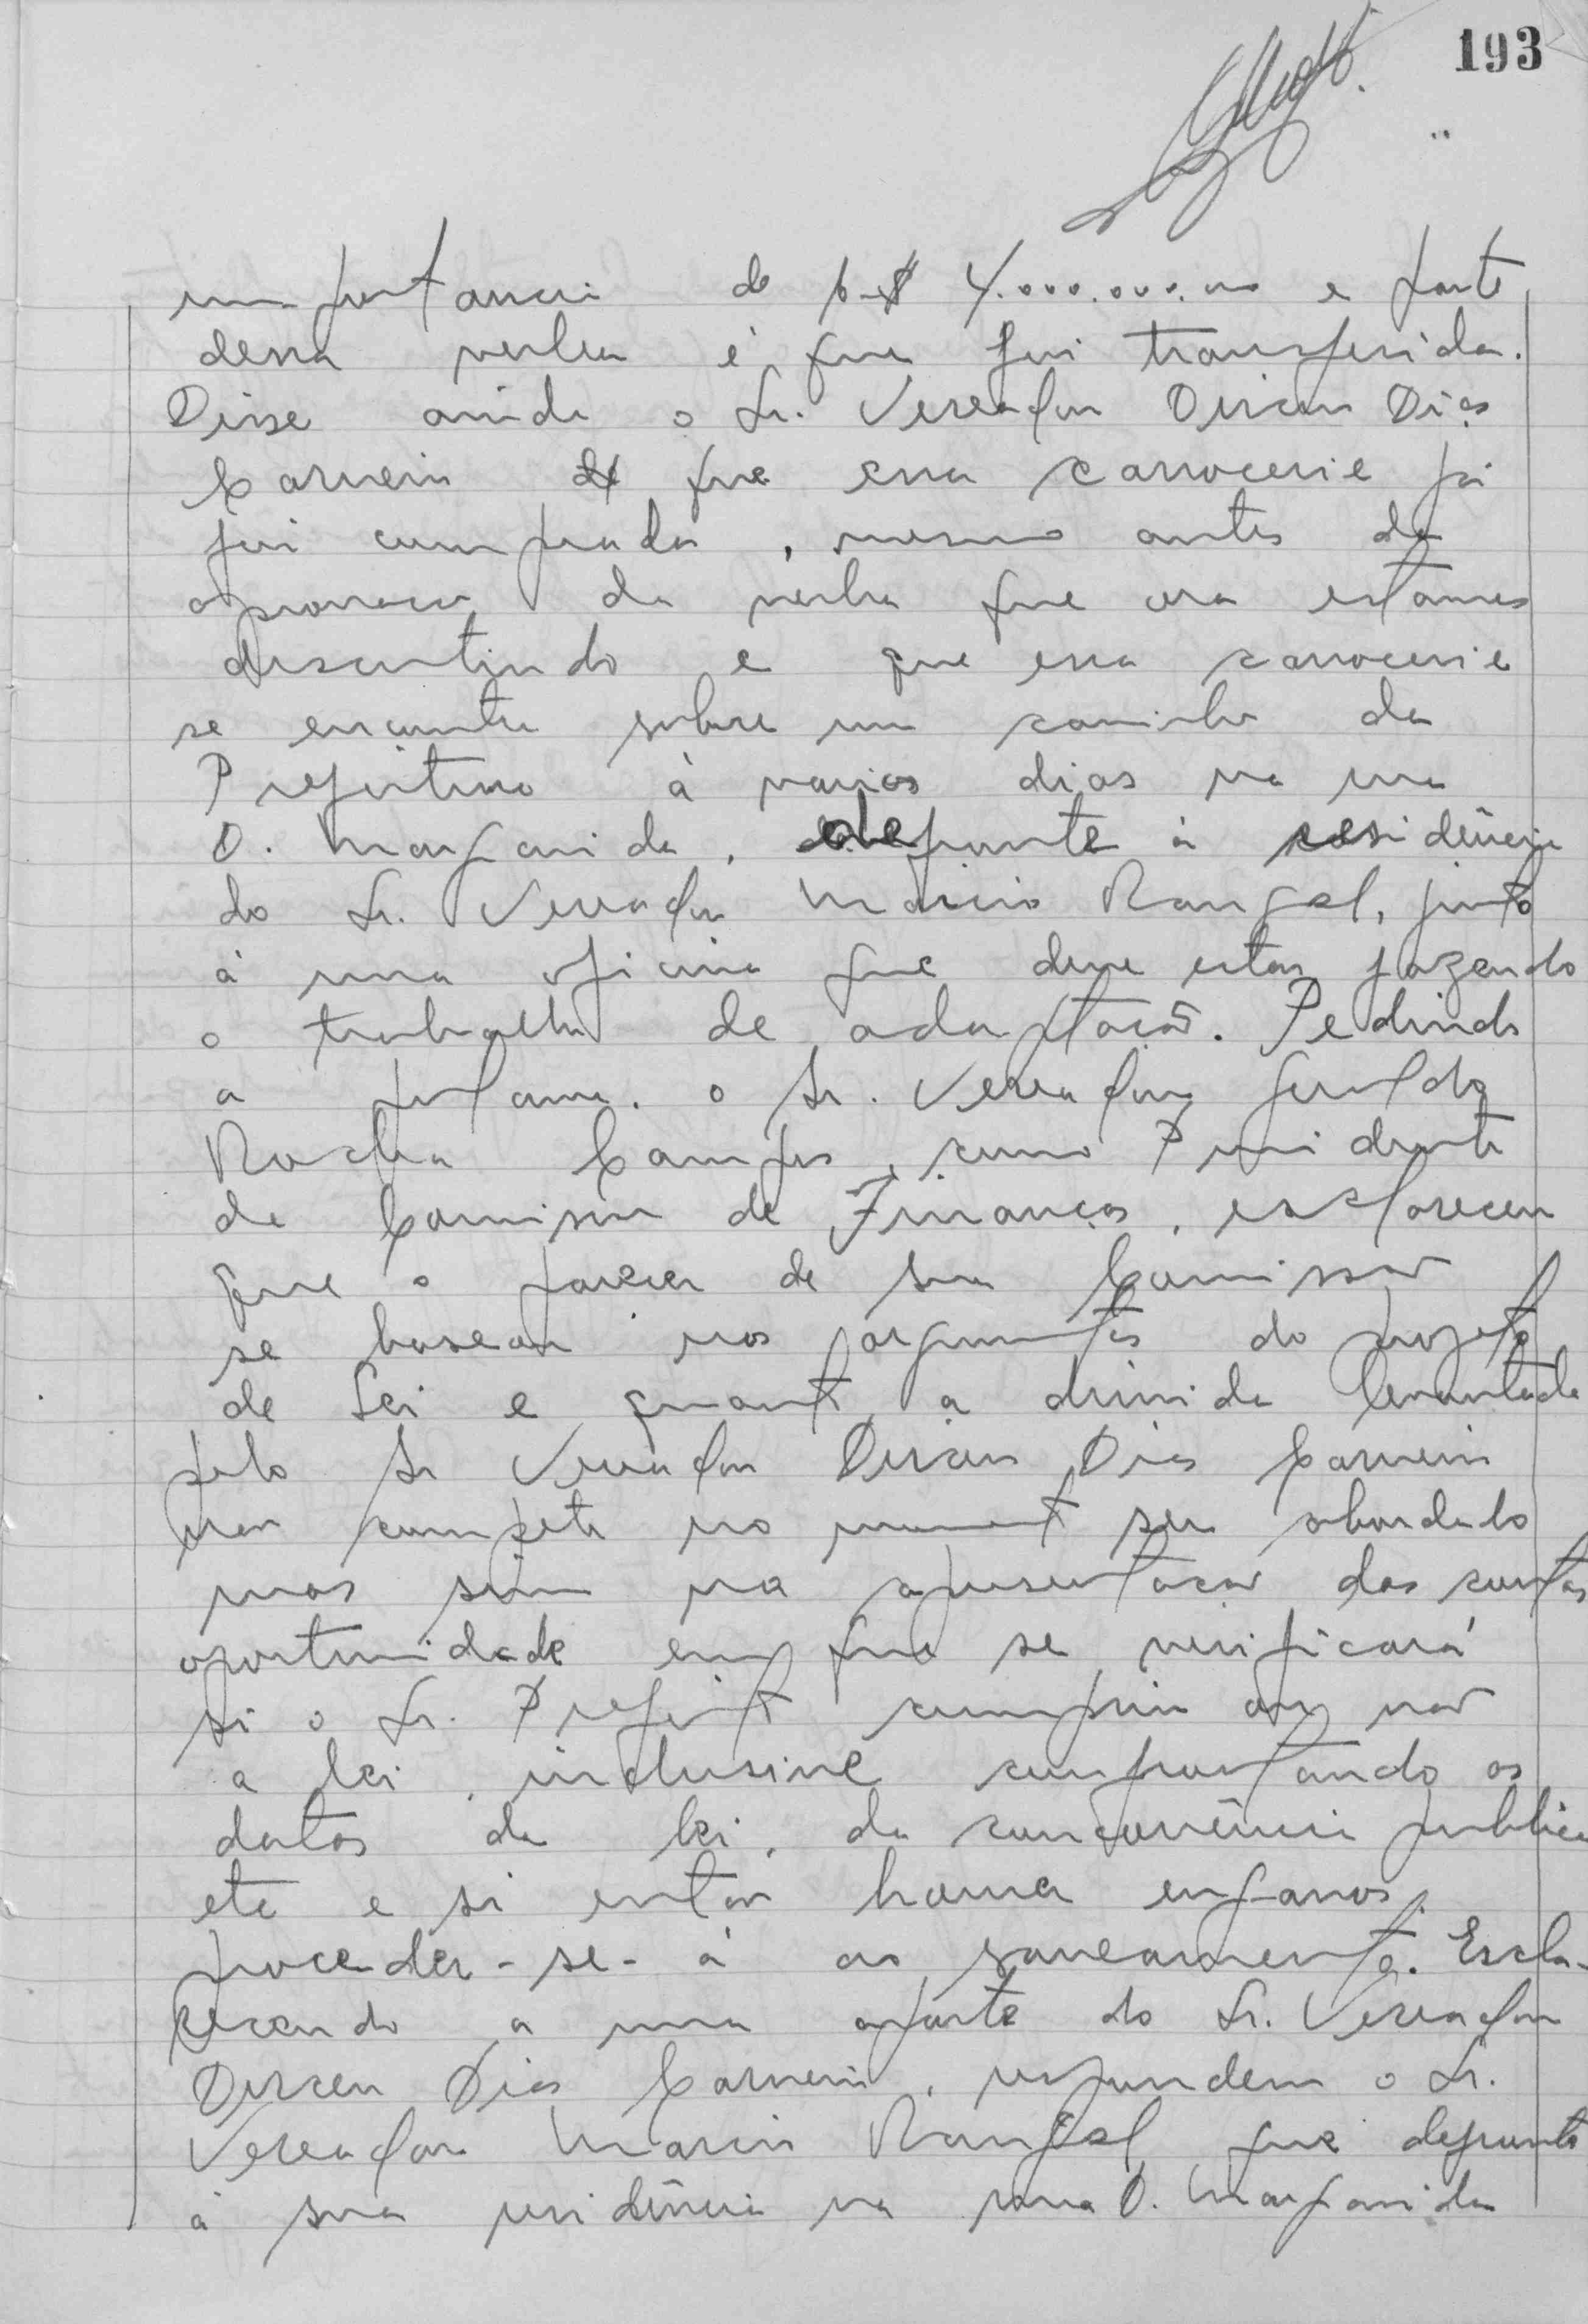 193
importancia de Cr$ 4.000.000,00 e parte
dessa verba é que foi transferida.
Disse ainda o Sr. Vereador Dirceu Dias
Carneiro que essa carrocerie já
foi comprada, mesmo antes da
aprovação da verba que ora estamos
discutindo e que essa carrocerie
se encontra sobre um caminhão da
Prefeitura á varios dias na rua
D. Margarida, defronte á residência
do Sr. Vereador Marcio Rangel, junto
á uma oficina que deve estar fazendo
o trabalho de adaptação. Pedindo
a palavra, o Sr. Vereador Geraldo
Rocha Campos, como Presidente
da Comissão de Finanças, esclareceu
que o parecer de sua Comissão
se baseou nos argumentos do projeto
de Lei e quanto a duvida levantada
pelo Sr Vereador Dirceu Dias Carneiro
não compete no momento ser abordado
mas sim na apresentação das contas
oportunidade em que se verificará
si o Sr. Prefeito cumpriu ou não
a lei, inclusive confrontando as
datas da lei, da concorrência publica
etc e si então houver enganos,
proceder-se-á ao saneamento. Escla-
recendo a uma aparte do Sr. Vereador
Dirceu Dias Carneiro, respondeu o Sr.
Vereador Marcio Rangel que defronte
á sua residência na rua D. Margarida